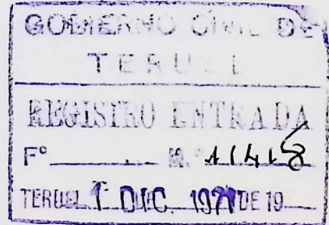 GOBIERNO CIVIL DE
TERUEL
REGISTRO ENTRADA
Fº N.º 11418
TERUEL 1 DIC. 1971 DE 19